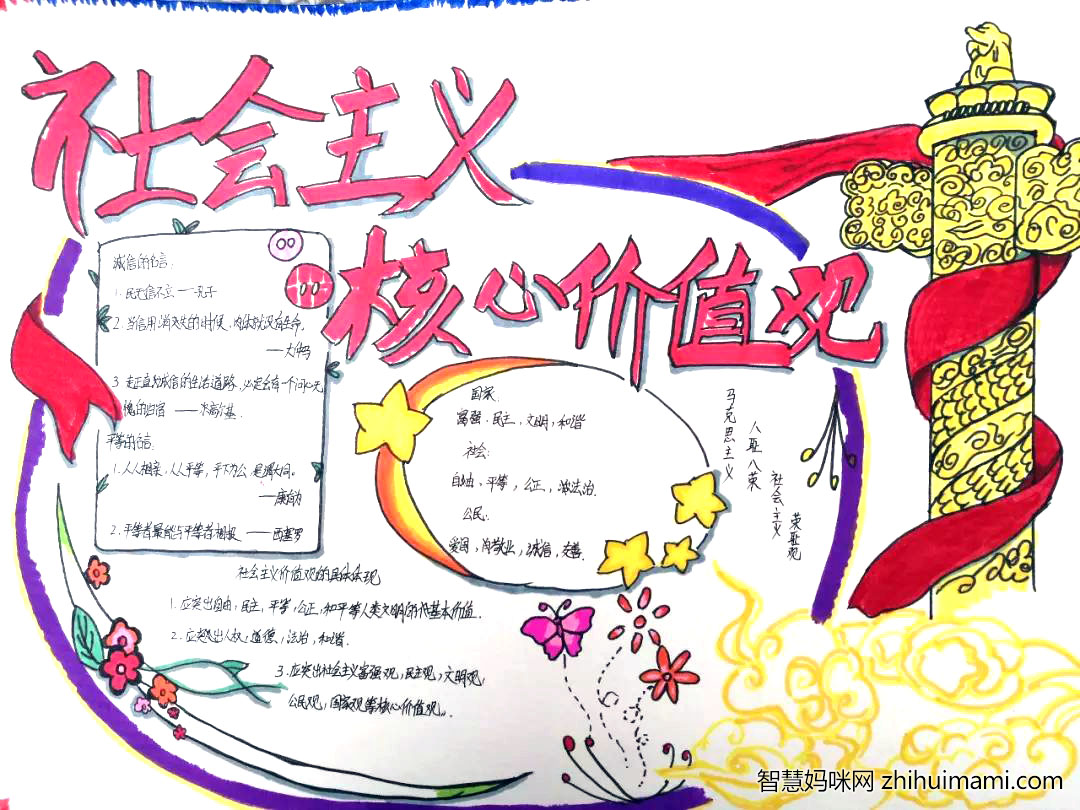 社会主义
核心价值观
诚信的名言:
1. 民无信不立 ——孔子
2. 当信用消失的时候,肉体就没有生命.
——大仲马
3. 走正直诚信的生活道路,必定会有一个问心无
愧的归宿 ——高尔基.
平等的名言:
1. 人人相亲,人人平等,天下为公,是谓大同.
——康有为
2. 平等者最能与平等者相投 ——西塞罗
国家:
富强,民主,文明,和谐
社会:
自由,平等,公正,法治.
公民:
爱国,敬业,诚信,友善.
马克思主义
八荣
社会主义
荣耻观
社会主义价值观的具体体现
1. 应突出自由,民主,平等,公正,和平等人类文明的基本价值.
2. 应突出人权,道德,法治,和谐.
3. 应突出社会主义富强观,民主观,文明观,
公民观,国家观等核心价值观.
智慧妈咪网 zhihuimami.com